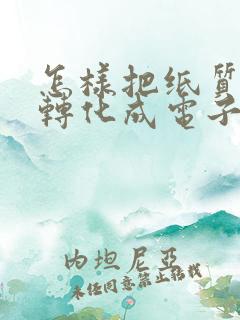 怎樣把纸質
轉化成電子
内坦尼亞
未经同意禁止转载